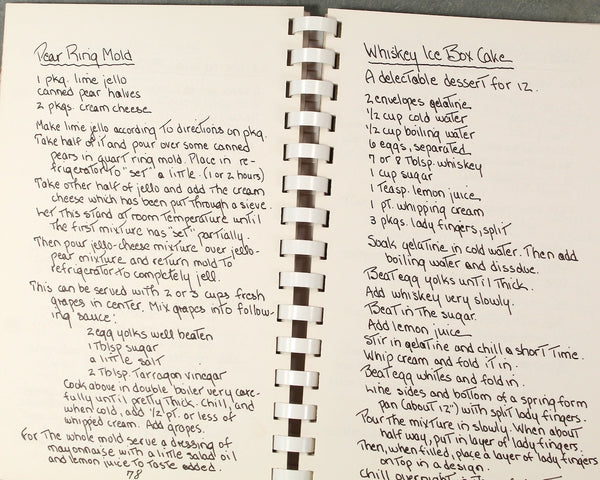 Pear Ring Mold
1 pkg. lime jello
canned pear halves
2 pkgs. cream cheese
Make lime jello according to directions on pkg.
Take half of it and pour over some canned
pears in quart ring mold. Place in re-
frigerator to "set" a little. (1 or 2 hours)
Take other half of jello and add the cream
cheese which has been put through a sieve.
Let this stand at room temperature until
the first mixture has "set" partially.
Then pour jello-cheese mixture over jello-
pear mixture and return mold to
refrigerator to completely jell.
This can be served with 2 or 3 cups fresh
grapes in center. Mix grapes into follow-
ing sauce:
2 egg yolks well beaten
1 Tblsp sugar
a little salt
2 Tblsp. Tarragon vinegar
Cook above in double boiler very care-
fully until pretty thick. Chill, and
when cold, add 1/2 pt. or less of
whipped cream. Add grapes.
For the whole mold serve a dressing of
mayonnaise with a little salad oil
and lemon juice to taste added.
78
Whiskey Ice Box Cake
A delectable dessert for 12.
2 envelopes gelatine
1/2 cup cold water
1/2 cup boiling water
6 eggs, separated
7 or 8 Tblsp. whiskey
1 cup sugar
1 Teasp. lemon juice
1 pt. whipping cream
3 pkgs. lady fingers, split
Soak gelatine in cold water. Then add
boiling water and dissolve.
Beat egg yolks until thick.
Add whiskey very slowly.
Beat in the sugar.
Add lemon juice
Stir in gelatine and chill a short time.
Whip cream and fold it in.
Beat egg whites and fold in.
Line sides and bottom of a spring form
pan (about 12") with split lady fingers.
Pour the mixture in slowly. When about
half way, put in layer of lady fingers.
Then, when filled, place a layer of lady fingers
on top in a design.
Chill overnight